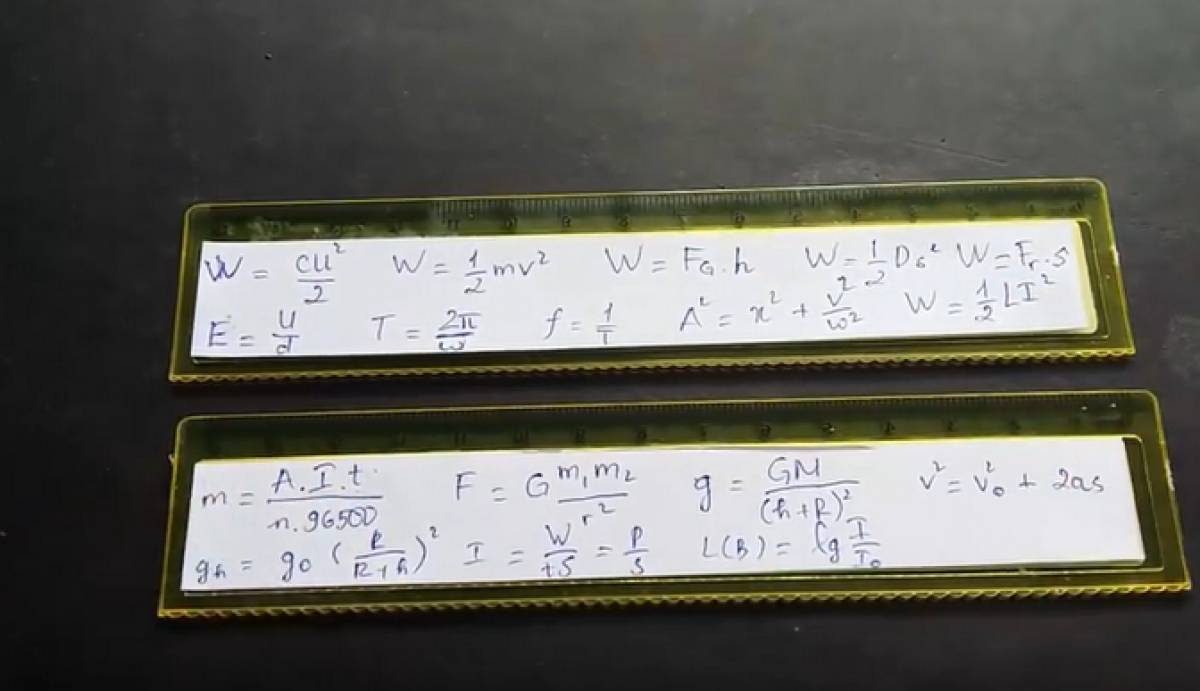 W = cu²/2 W = 1/2 mv² W = F_G.h W = 1/2 D_s² W = F_r.s
E = U/d T = 2π/w f = 1/T A² = x² + v²/w² W = 1/2 LI²
m = A.I.t/n.96500 F = G m₁m₂/r² g = GM/(h+R)² v² = v₀² + 2as
g_h = g₀ (R/R+h)² I = W/tS = P/S L(B) = lg I/I₀